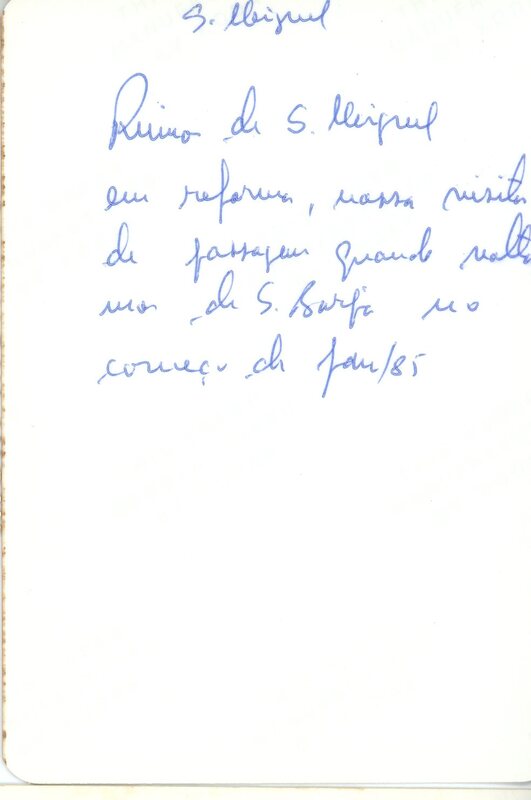 S. Miguel
Ruinas de S. Miguel
em reforma, nossa visita
de passagem quando volta
mos de S. Borja no
começo de jan/85